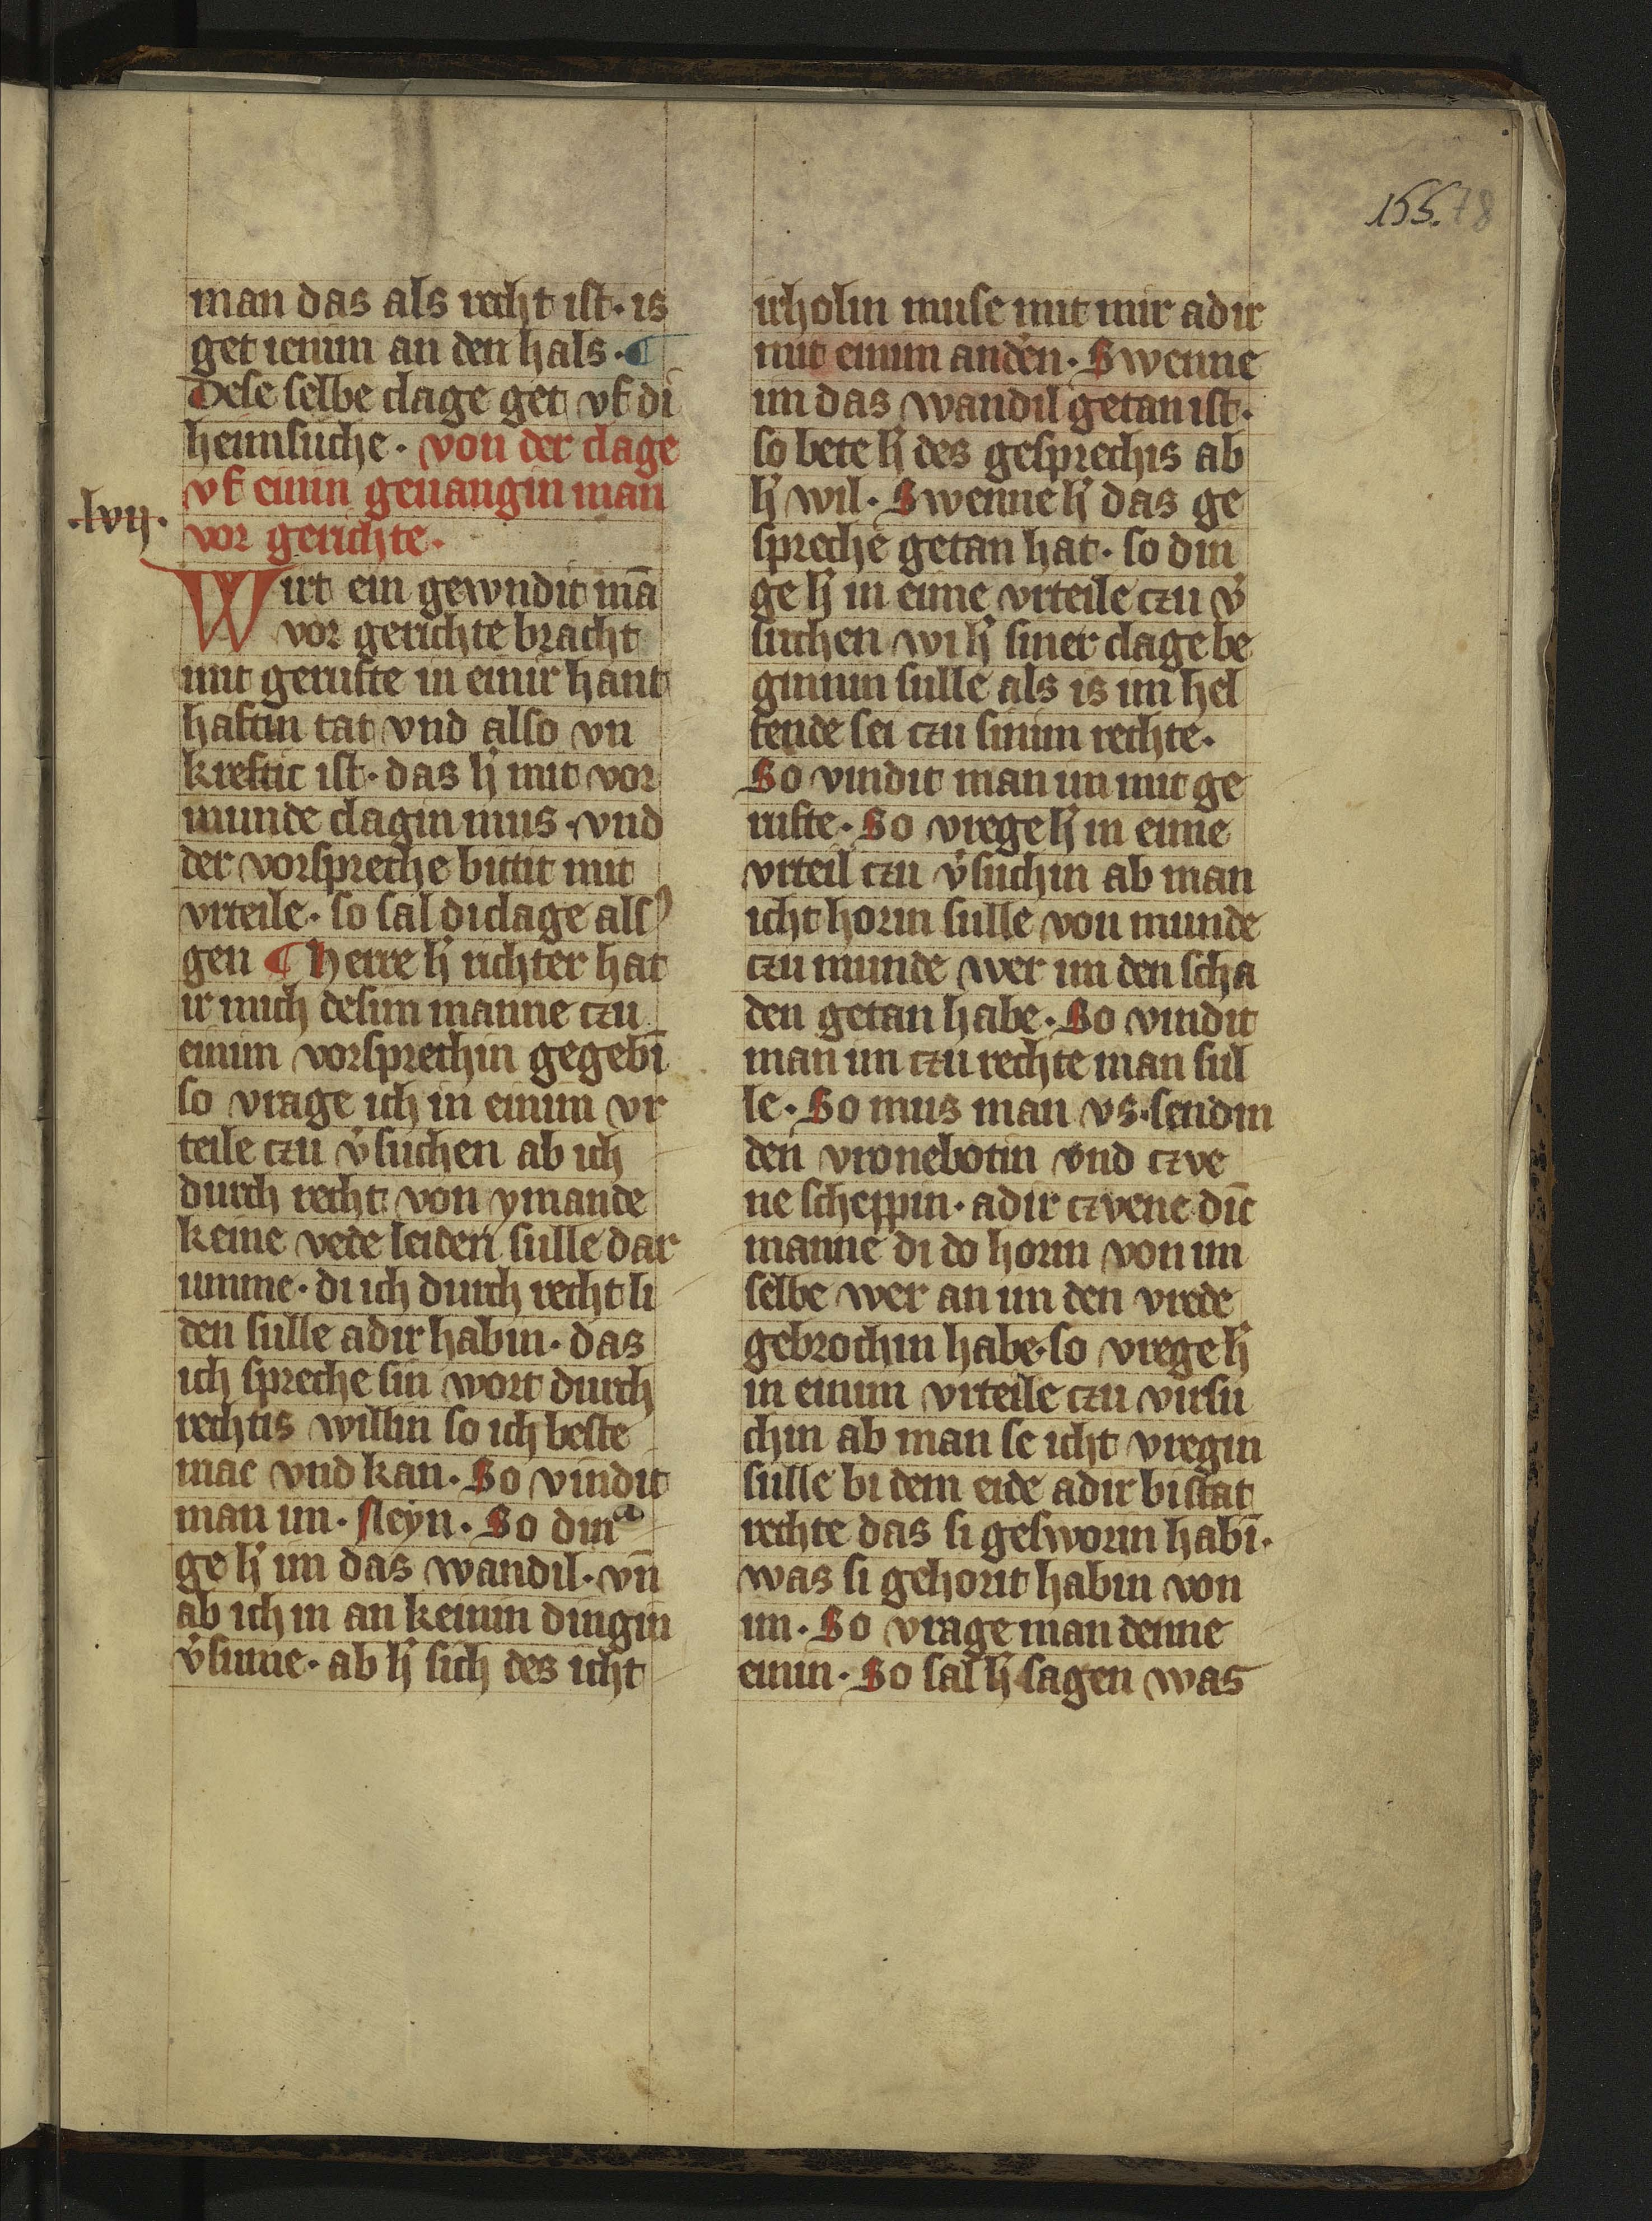 155. 78
man das als recht ist. is
get ienim an den hals. ¶
Dese selbe clage get vf di
heimsuche. von der clage
vf einin geuangin man
.lvij.
vor gerichte.
Wirt ein gewndit mā
vor gerichte bracht
mit gerufte in einir hant
haftin tat vnd also vn
kreftic ist. das h̓ mit vor
munde clagin mus. vnd
der vorspreche bittit mit
vrteile. so sal di clage als
gen ¶ Herre h̓ richter hat
ir mich desim manne czu
einim vorsprechin gegebī
so vrage ich in einim vr
teile czu v̓suchen ab ich
durch recht von ymande
keine vede leiden sulle dar
umme. di ich durch recht li
den sulle adir habin. das
ich spreche sin wort durch
rechtis willin so ich beste
mac vnd kan. So vindit
man im. Neyn. So din
ge h̓ im das wandil. vn̄
ab ich in an keinin dingin
v̓sume. ab h̓ sich des icht
irholin muse mit mir adir
mit einim anden̓. Swenne
im das wandil getan ist.
so bete h̓ des gesprechis ab
h̓ wil. Swenne h̓ das ge
spreche getan hat. so din
ge h̓ in eime vrteile czu v̓
suchen wi h̓ siner clage be
ginnin sulle als is im hel
fende sei czu sinim rechte.
So vindit man im mit ge
rufte. So vrege h̓ in eime
vrteil czu v̓suchin ab man
icht horin sulle von munde
czu munde wer im den scha
den getan habe. So vindit
man im czu rechte man sul
le. So mus man vs. sendin
den vronebotin vnd czve
ne scheppin. adir czvene dīc
manne di do horin von im
selbe wer an im den vrede
gebrochin habe. so vrege h̓
in einim vrteile czu virsu
chin ab man se icht vregin
sulle bi dem eide adir bi stat
rechte das si gesworin habī.
was si gehorit habin von
im. So vrage man denne
einin. So sal h̓ sagen was